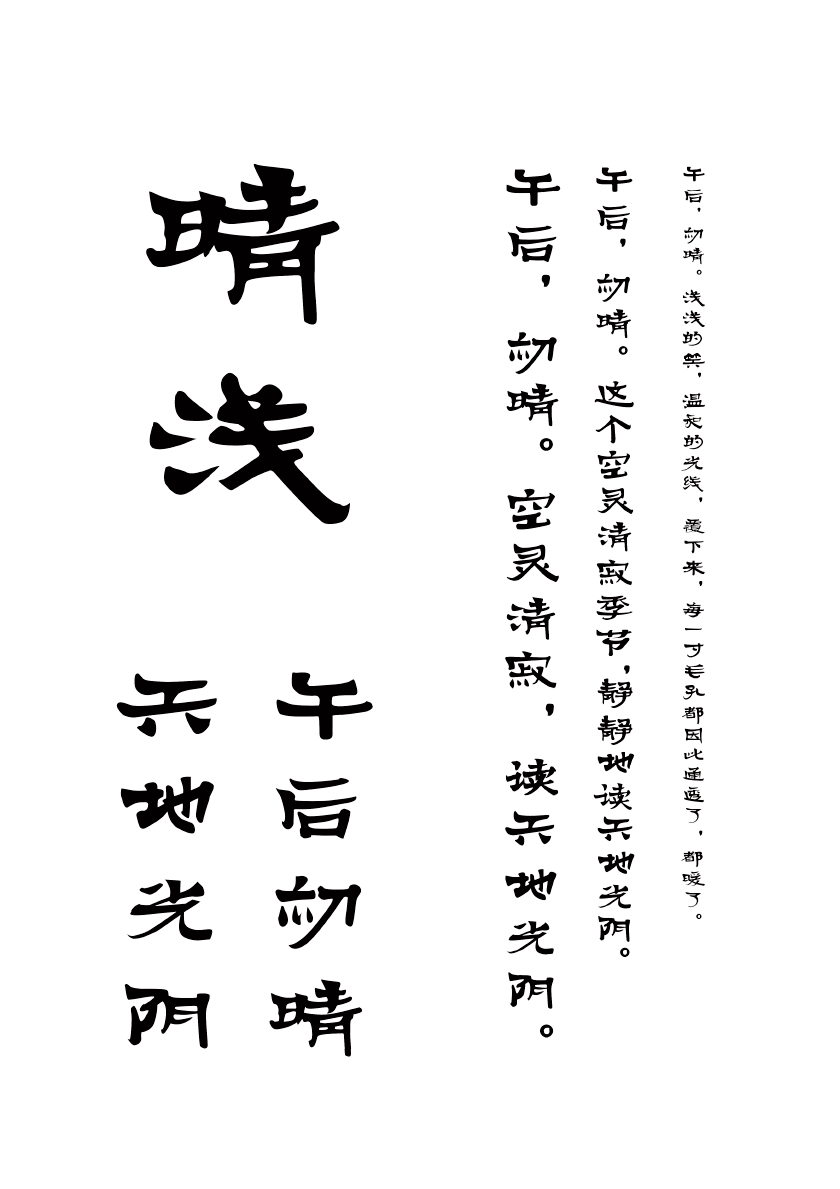 午后，初晴。浅浅的笑，温和的光线，覆下来，每一寸毛孔都因此通透了，都暖了。
午后，初晴。这个空灵清寂季节，静静地读天地光阴。
午后，初晴。空灵清寂，读天地光阴。
晴浅
午后初晴
天地光阴